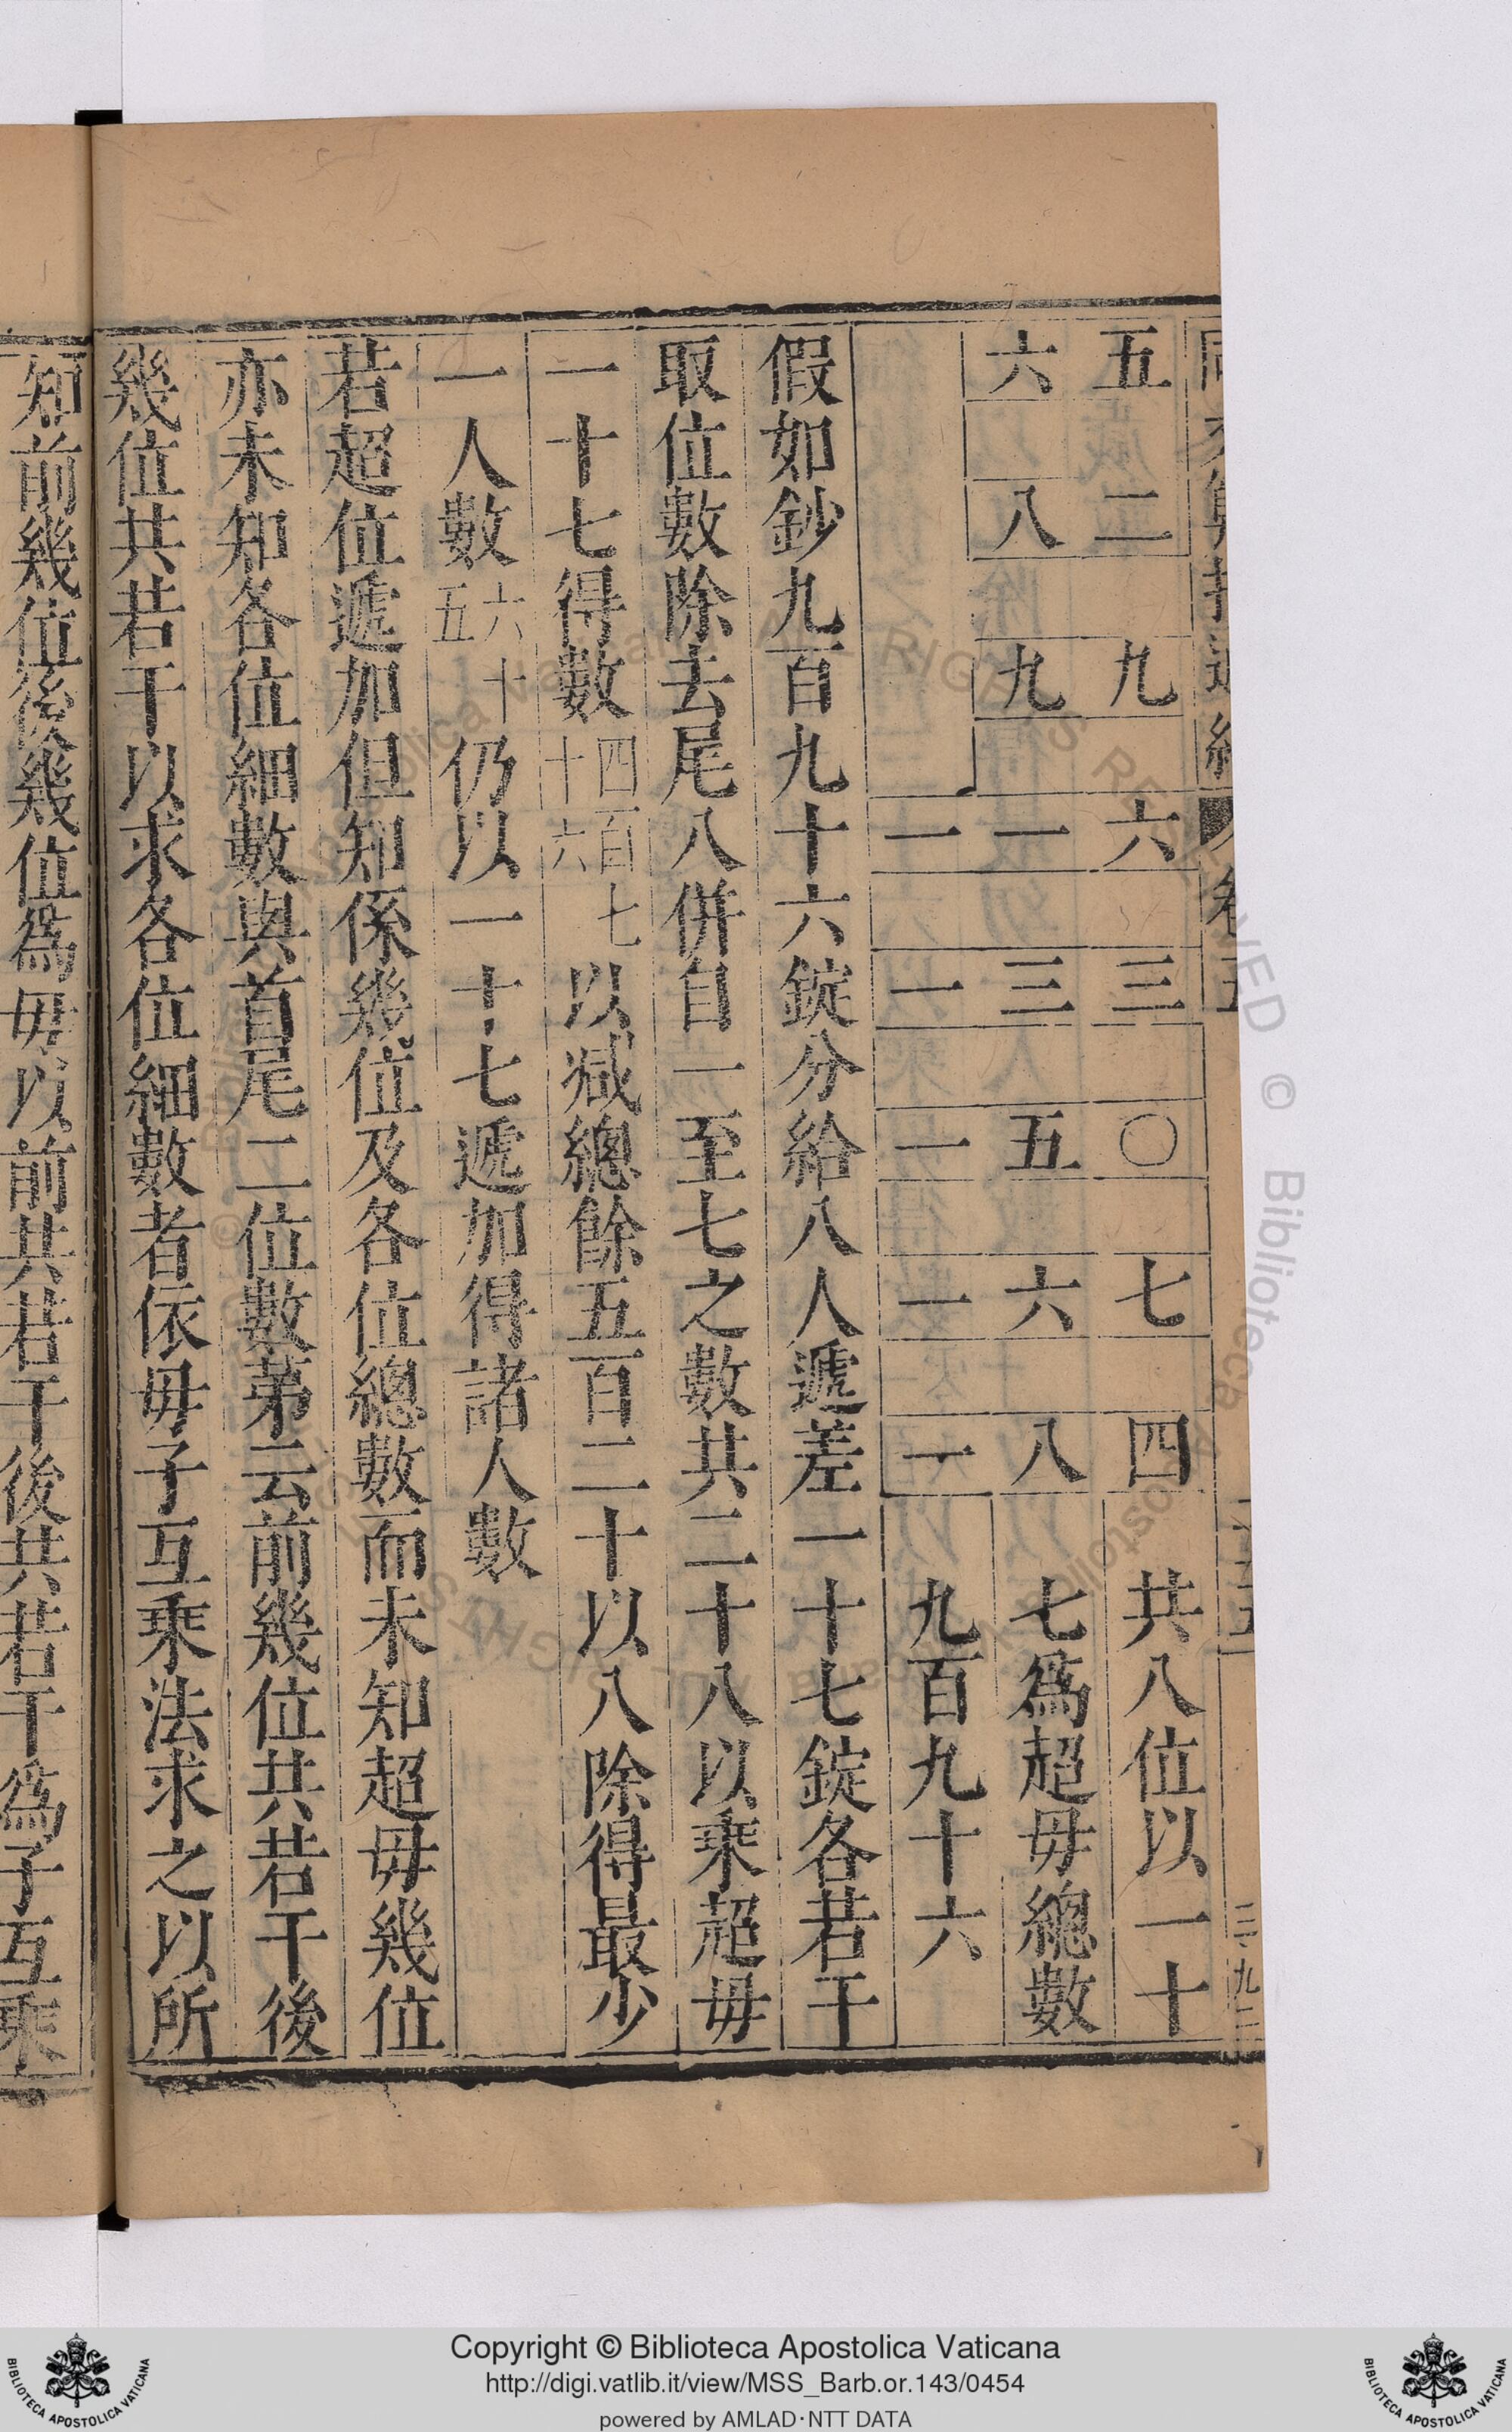 五二　九　六　三　〇　七　四　共八位以一十
六　八　九　一　三　五　六　八　七爲超毋總數
一　一　一　一　一　九百九十六
假如鈔九百九十六錠分給八人遞差一十七錠各若干
取位數除去尾八併自一至七之數共二十八以乘超毋
一十七得數四百七十六以减總餘五百二十以八除得最少
一人數六十五仍以一十七遞加得諸人數
若超位遞加但知係幾位及各位總數而未知超毋幾位
亦未知各位細數與首尾二位數苐云前幾位共若干後
幾位共若干以求各位細數者依毋子互乘法求之以所
知前幾位後幾位爲毋以前共若干後共若干爲子互乘
Copyright © Biblioteca Apostolica Vaticana
http://digi.vatlib.it/view/MSS_Barb.or.143/0454
powered by AMLAD·NTT DATA
BIBLIOTECA APOSTOLICA VATICANA
BIBLIOTECA APOSTOLICA VATICANA